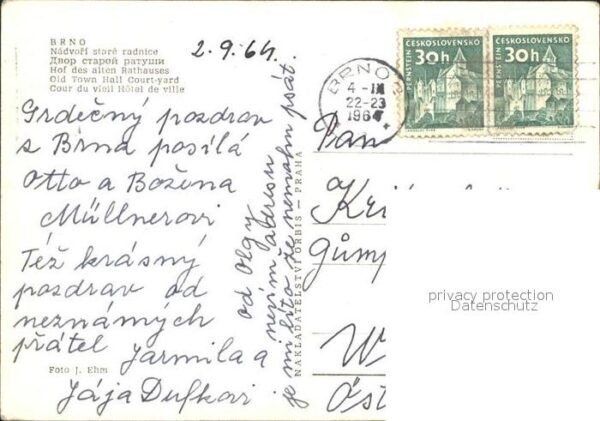 BRNO
Nádvoří staré radnice
Двор старой ратуши
Hof des alten Rathauses
Old Town Hall Court-yard
Cour du vieil Hôtel de ville
2.9.64.
Srdečný pozdrav
z Brna posílá
Otto a Božena
Müllnerovi
Též krásný
pozdrav od
neznámých
přátel Jarmila a
Jája Dufkovi
Foto J. Ehm
od Olgy
nevím adresu
je mi líto že nemohu psát.
NAKLADATELSTVÍ ORBIS — PRAHA
ČESKOSLOVENSKO
30h
PERNŠTEJN
ČESKOSLOVENSKO
30h
PERNŠTEJN
BRNO
4 - IX
22-23
1964
Pan
W
Öst
privacy protection
Datenschutz